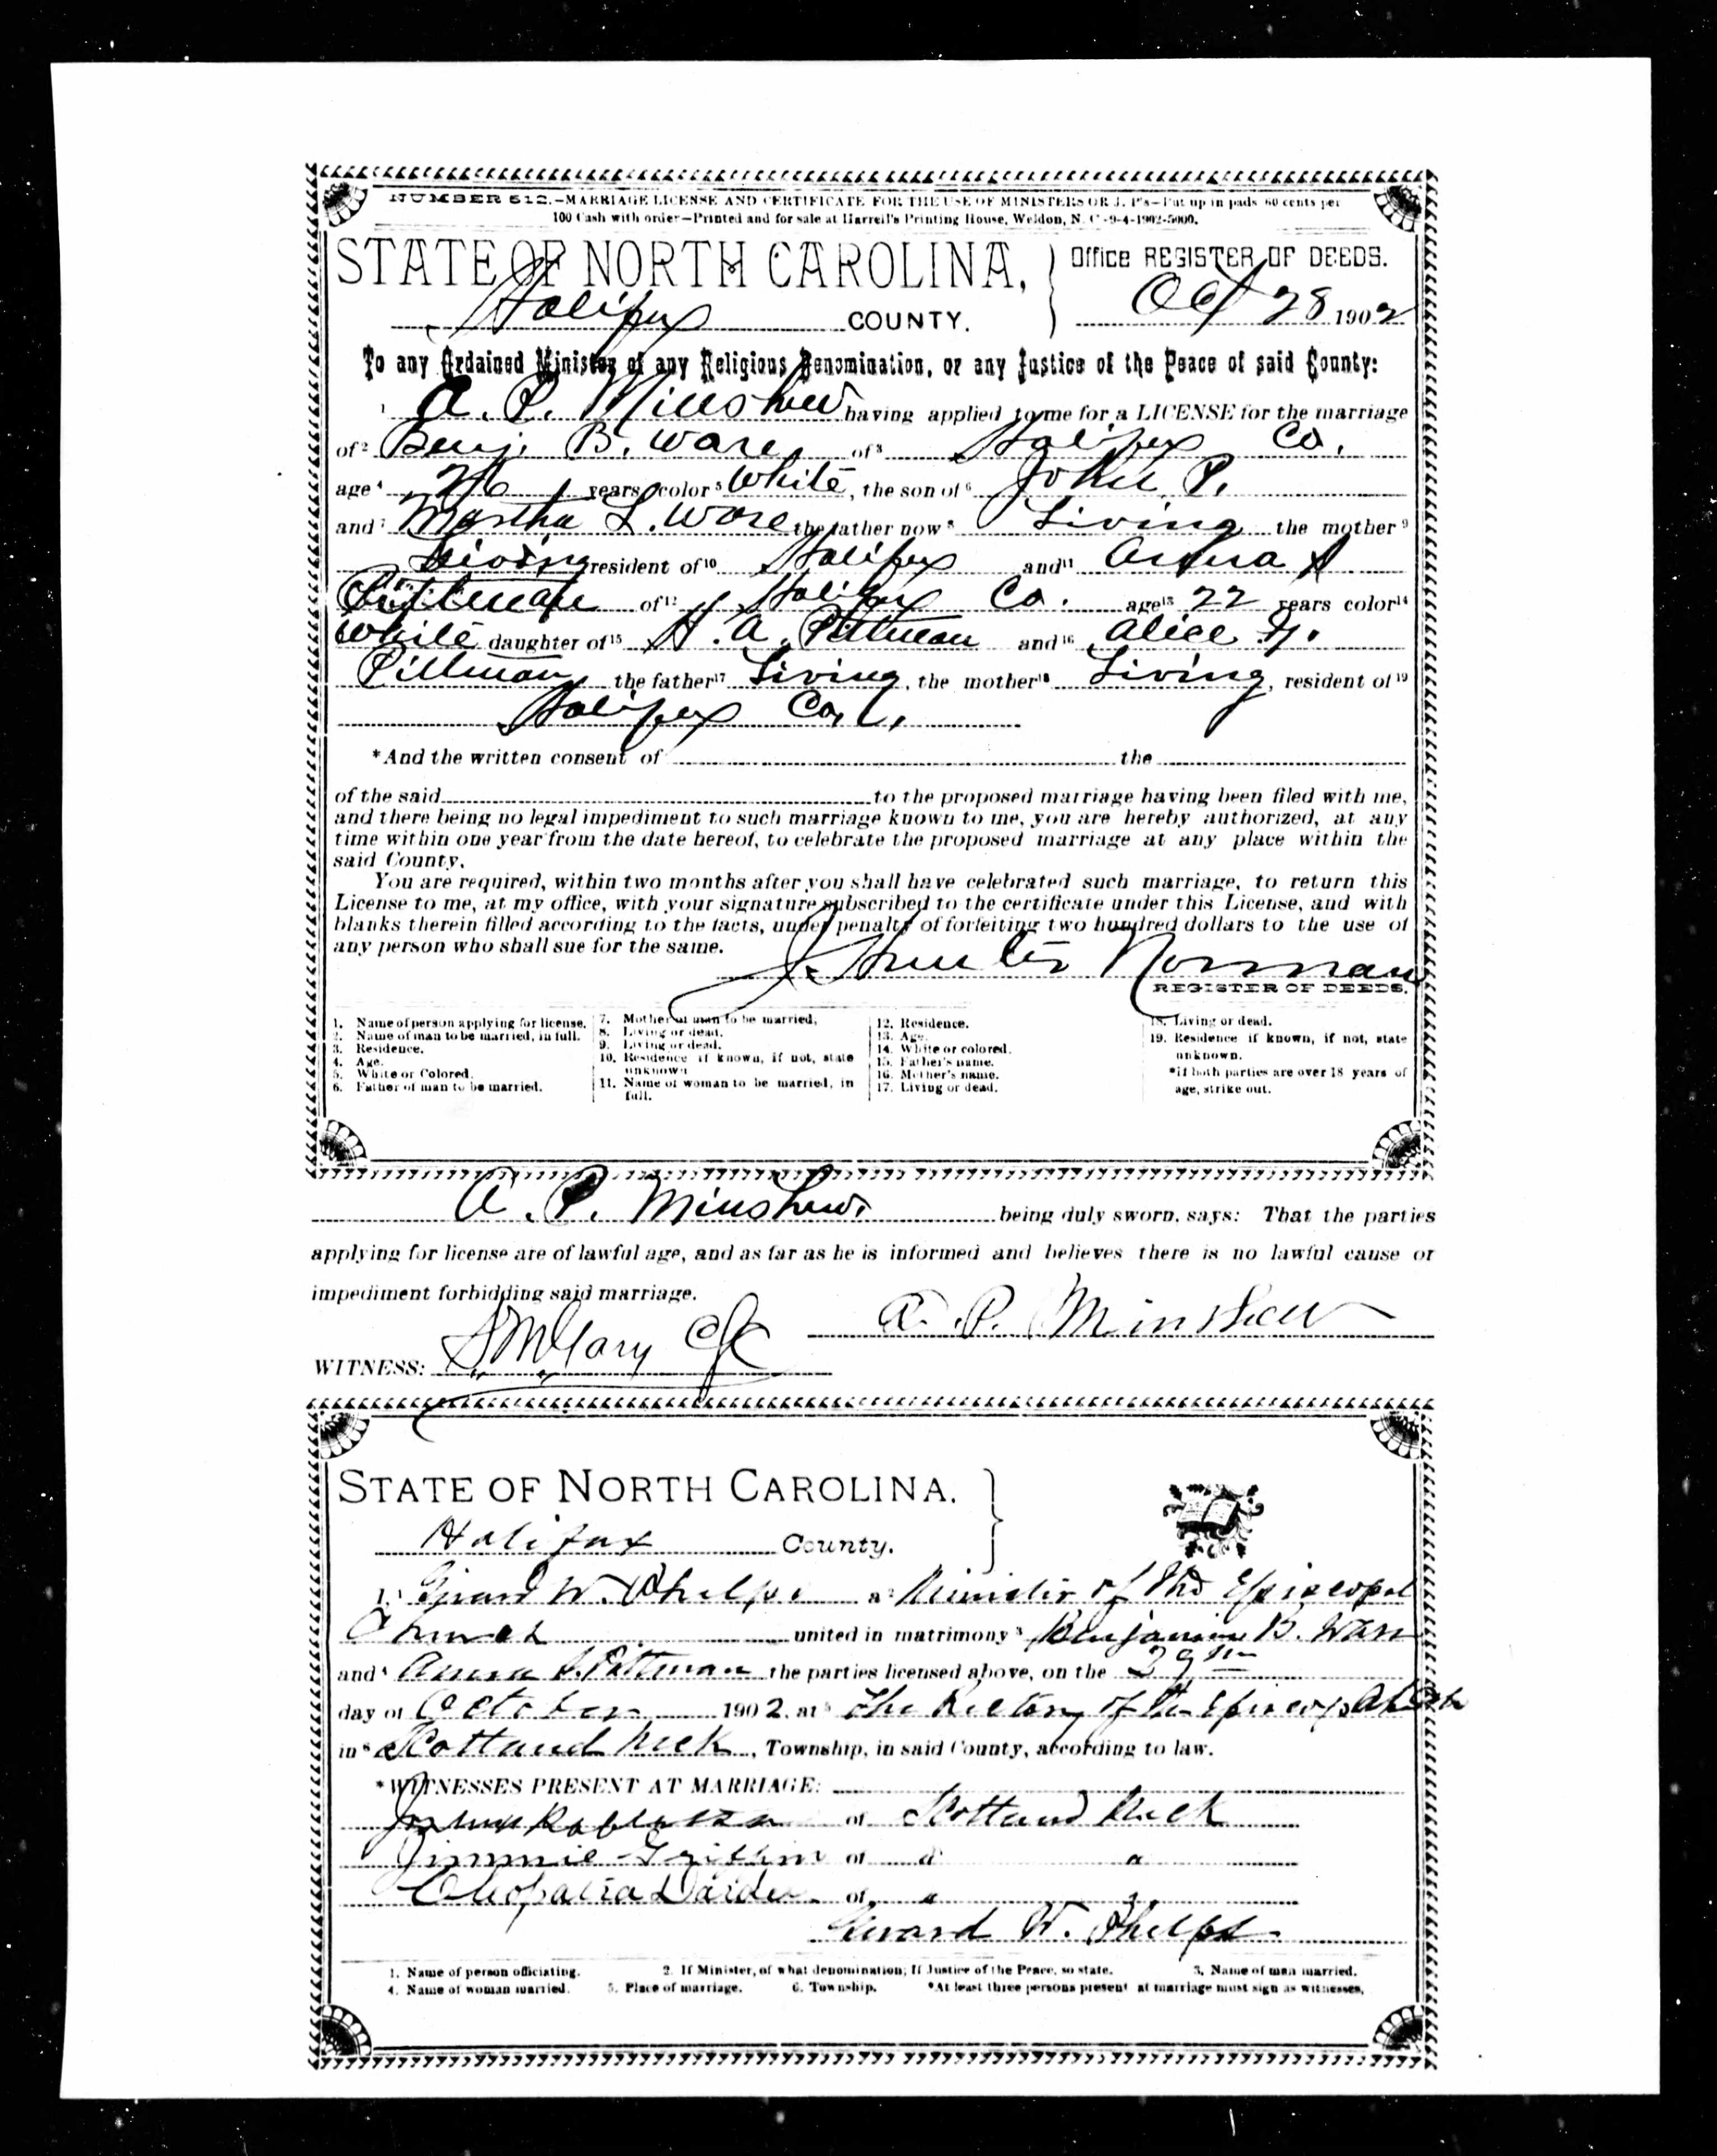 NUMBER 512.—MARRIAGE LICENSE AND CERTIFICATE FOR THE USE OF MINISTERS OR J. P's—Put up in pads 60 cents per
100 Cash with order—Printed and for sale at Harrell's Printing House, Weldon, N. C.-9-4-1902-5000.
STATE OF NORTH CAROLINA,
Halifax COUNTY.
Office REGISTER OF DEEDS.
Oct 28 1902
To any Ordained Minister of any Religious Denomination, or any Justice of the Peace of said County:
1 A. P. Minshew having applied to me for a LICENSE for the marriage
of 2 Benj. B. Ware of 3 Halifax Co.
age 4 26 years color 5 White, the son of 6 John P.
and 7 Martha L. Ware the father now 8 Living the mother 9
Living resident of 10 Halifax and 11
Pittman of 12 Halifax Co. age 13 22 years color 14
White daughter of 15 H. A. Pittman and 16 Alice
Pittman the father 17 Living, the mother 18 Living, resident of 19
Halifax Co.
*And the written consent of the
of the said to the proposed marriage having been filed with me,
and there being no legal impediment to such marriage known to me, you are hereby authorized, at any
time within one year from the date hereof, to celebrate the proposed marriage at any place within the
said County.
You are required, within two months after you shall have celebrated such marriage, to return this
License to me, at my office, with your signature subscribed to the certificate under this License, and with
blanks therein filled according to the facts, under penalty of forfeiting two hundred dollars to the use of
any person who shall sue for the same.
J. Hunter Norman
REGISTER OF DEEDS.
1. Name of person applying for license.
2. Name of man to be married, in full.
3. Residence.
4. Age.
5. White or Colored.
6. Father of man to be married.
7. Mother of man to be married.
8. Living or dead.
9. Living or dead.
10. Residence if known, if not, state
unknown
11. Name of woman to be married, in
full.
12. Residence.
13. Age.
14. White or colored.
15. Father's name.
16. Mother's name.
17. Living or dead.
18. Living or dead.
19. Residence if known, if not, state
unknown.
*if both parties are over 18 years of
age, strike out.
A. P. Minshew. being duly sworn, says: That the parties
applying for license are of lawful age, and as far as he is informed and believes there is no lawful cause or
impediment forbidding said marriage.
A. P. Minshew
WITNESS: S M Gary
STATE OF NORTH CAROLINA.
Halifax County.
I, 1 Girard W. Phelps a 2 Minister of the Episcopal
Church united in matrimony 3 Benjamin B. Ware
and 4 Pittman the parties licensed above, on the 29th
day of October 1902, at 5 The Rectory of the Episcopal Ch
in 6 Scotland Neck, Township, in said County, according to law.
*WITNESSES PRESENT AT MARRIAGE:
of Scotland Neck
Jimmie Griffin of " "
Cleopatra of " "
Girard W. Phelps
1. Name of person officiating. 2. If Minister, of what denomination; If Justice of the Peace, so state. 3. Name of man married.
4. Name of woman married. 5. Place of marriage. 6. Township. *At least three persons present at marriage must sign as witnesses.